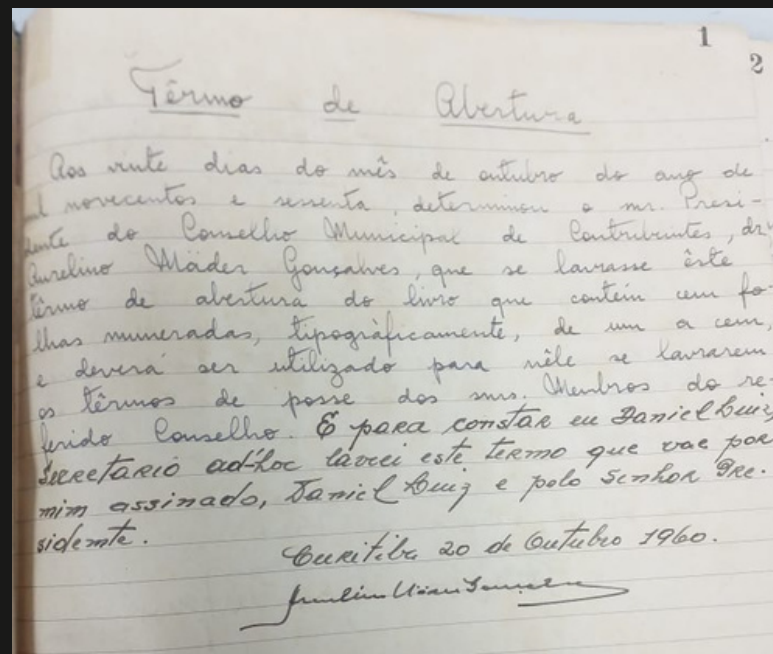 1
2
Têrmo de Abertura
Aos vinte dias do mês de outubro do ano de
l novecentos e sessenta, determinou o snr. Presi-
dente do Conselho Municipal de Contribuintes, dr.
Aurelino Mäder Gonçalves, que se lavrasse êste
têrmo de abertura do livro que contém cem fo-
lhas numeradas, tipogràficamente, de um a cem,
e deverá ser utilizado para nêle se lavrarem
os têrmos de posse dos snrs. Membros do re-
ferido Conselho. E para constar eu Daniel Luiz,
Secretario ad-hoc lavrei este termo que vae por
mim assinado, Daniel Luiz e pelo Senhor Pre-
sidente.
Curitiba 20 de Outubro 1960.